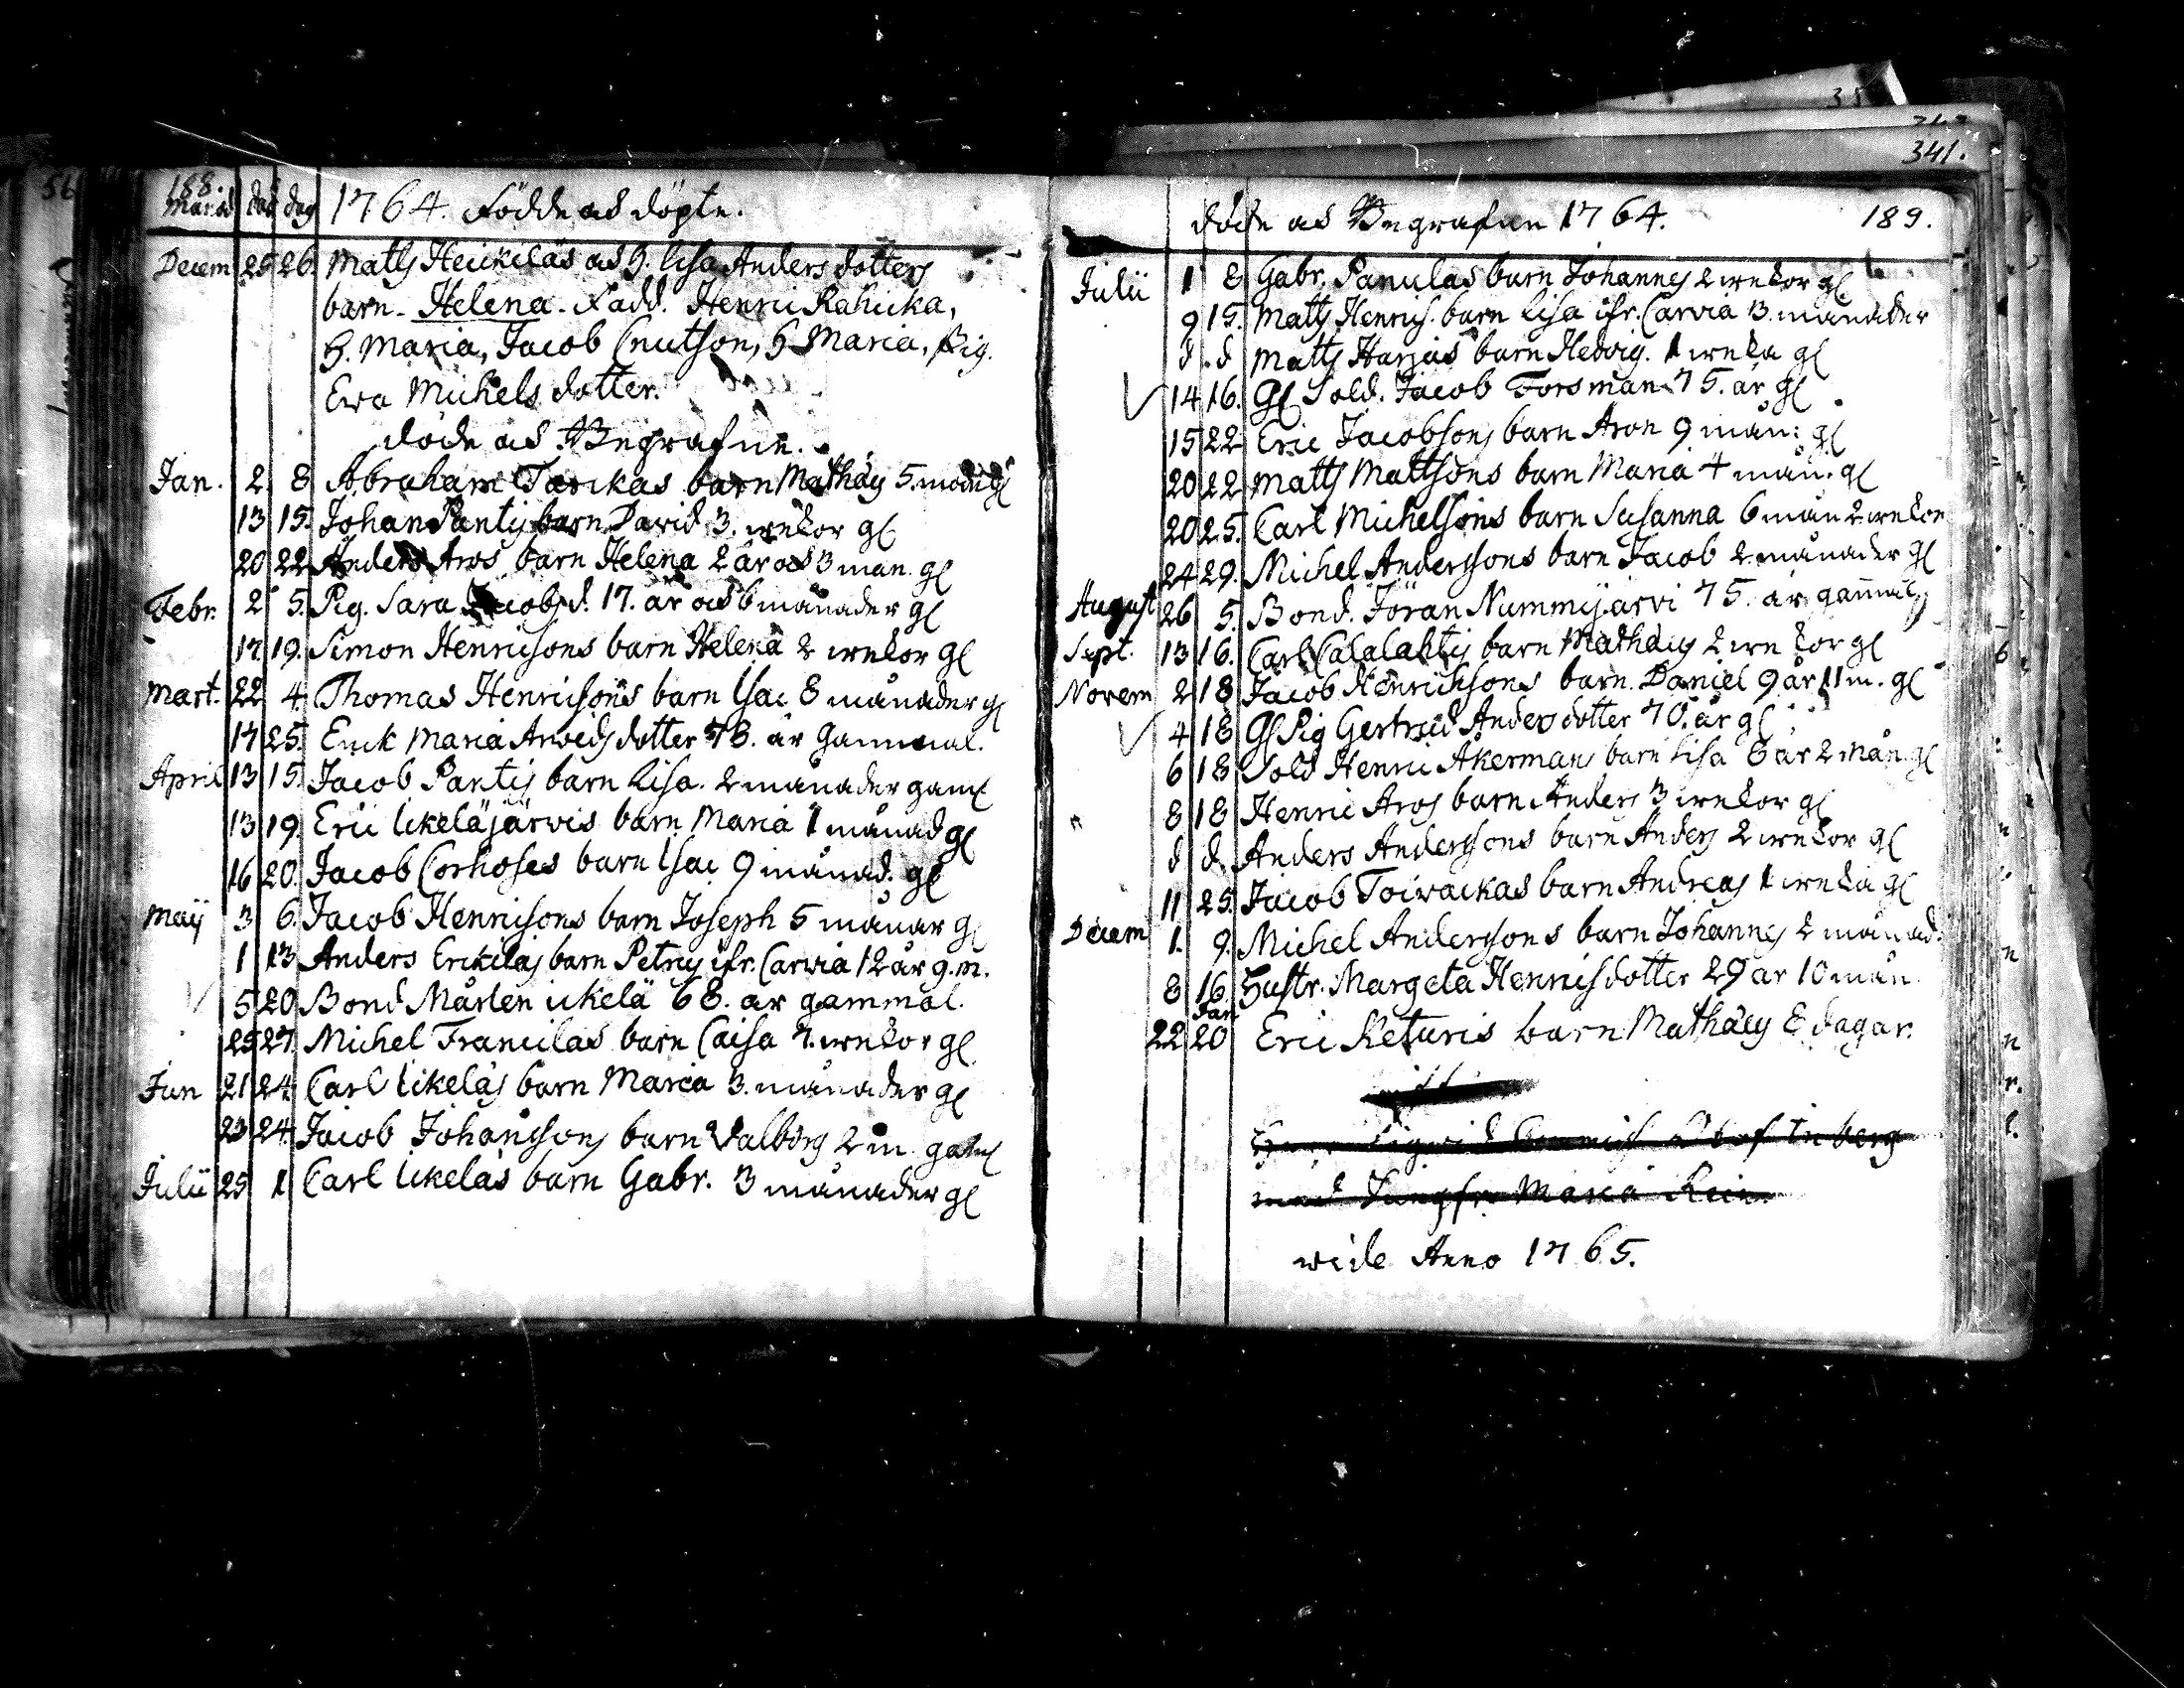 188.
Månad dag dag 1764. Födde och döpte.
Decem 25 26. Matts Heickiläs och H. Lisa Andersdotters
barn. Helena. Fadd. Henric Rahicka,
H. Maria, Jacob Cnutson, H Maria, Pig.
Ewa Michelsdotter.
döde och Begrafne.
Jan. 2. 8 Abraham Tarckas barn Mathæus 5. mån gl
13 15. Johan Pantis barn David 3. wekor gl
20 22 Anders Aros barn Helena 2 år och 3 mån. gl
Febr. 2 5. Pig. Sara Jacobsd. 17. år och 6 månader gl
17. 19. Simon Henricsons barn Helena 2 wekor gl
Mart. 22 4. Thomas Henricsons barn Isac 8 månader gl
17 25. Enck Maria Arvidsdotter 78. år gammal.
April 13 15. Jacob Pantis barn Lisa. 2 månader gaml
13 19. Eric Ickeläjärvis barn Maria 1 månad gl
16 20. Jacob Corhoses barn Isac 9 månad. gl
Maij 3 6. Jacob Henricsons barn Joseph 5 månar gl
1 13 Anders Erckilas barn Petrus ifr. Carvia 12 år 9. m.
5 20 Bond Mårten Ickelä 68. år gammal.
25 27. Michel Francilas barn Caisa 7. wekor gl
Jun 21 24. Carl Ickeläs barn Maria 3. månader gl
23 24. Jacob Johansons barn Valborg 2 m. gaml
Julii 25 1 Carl Ickeläs barn Gabr. 3 månader gl
341.
döde och Begrafne 1764. 189.
Julii 1 8 Gabr. Panulas barn Johannes 2 wekor gl
9 15. Matts Henrics. barn Lisa ifr. Carvia 3. månader
d d Matts Harjas barn Hedvig. 1 weka gl
14 16. Gl Sold. Jacob Forsman 75. år gl
15 22 Eric Jacobsons barn Aron 9 mån: gl
20 22 Matts Mattsons barn Maria 4 mån. gl
20 25. Carl Michelsons barn Susanna 6 mån 2 wekor
24 29. Michel Anderssons barn Jacob 2 månader gl
August 26 5. Bond. Jöran Nummijärvi 75. år gammal
Sept. 13 16. Carl Calalahtis barn Mathæus 2 wekor gl
Novem 2 18 Jacob Henrichsons barn. Daniel 9 år 11 m. gl
4 18 Gl Pig Gertrud Andersdotter 70. år gl
6 18 Sold Henric Åkermans barn Lisa 6 år 2 Mån. gl
8 18 Henric Aros barn Anders 3 wekor gl
d d. Anders Anderssons barn Anders 2 wekor gl
11 25. Jacob Toivackas barn Andreas 1 weka gl
Decem 1. 9. Michel Anderssons barn Johannes 2 månad.
8 16. Hustr. Margeta Henricsdotter 29 år 10 mån
Jan
22 20 Eric Keturis barn Mathæus 8 dagar.
med Jungfr. Maria Rein.
vide Anno 1765.